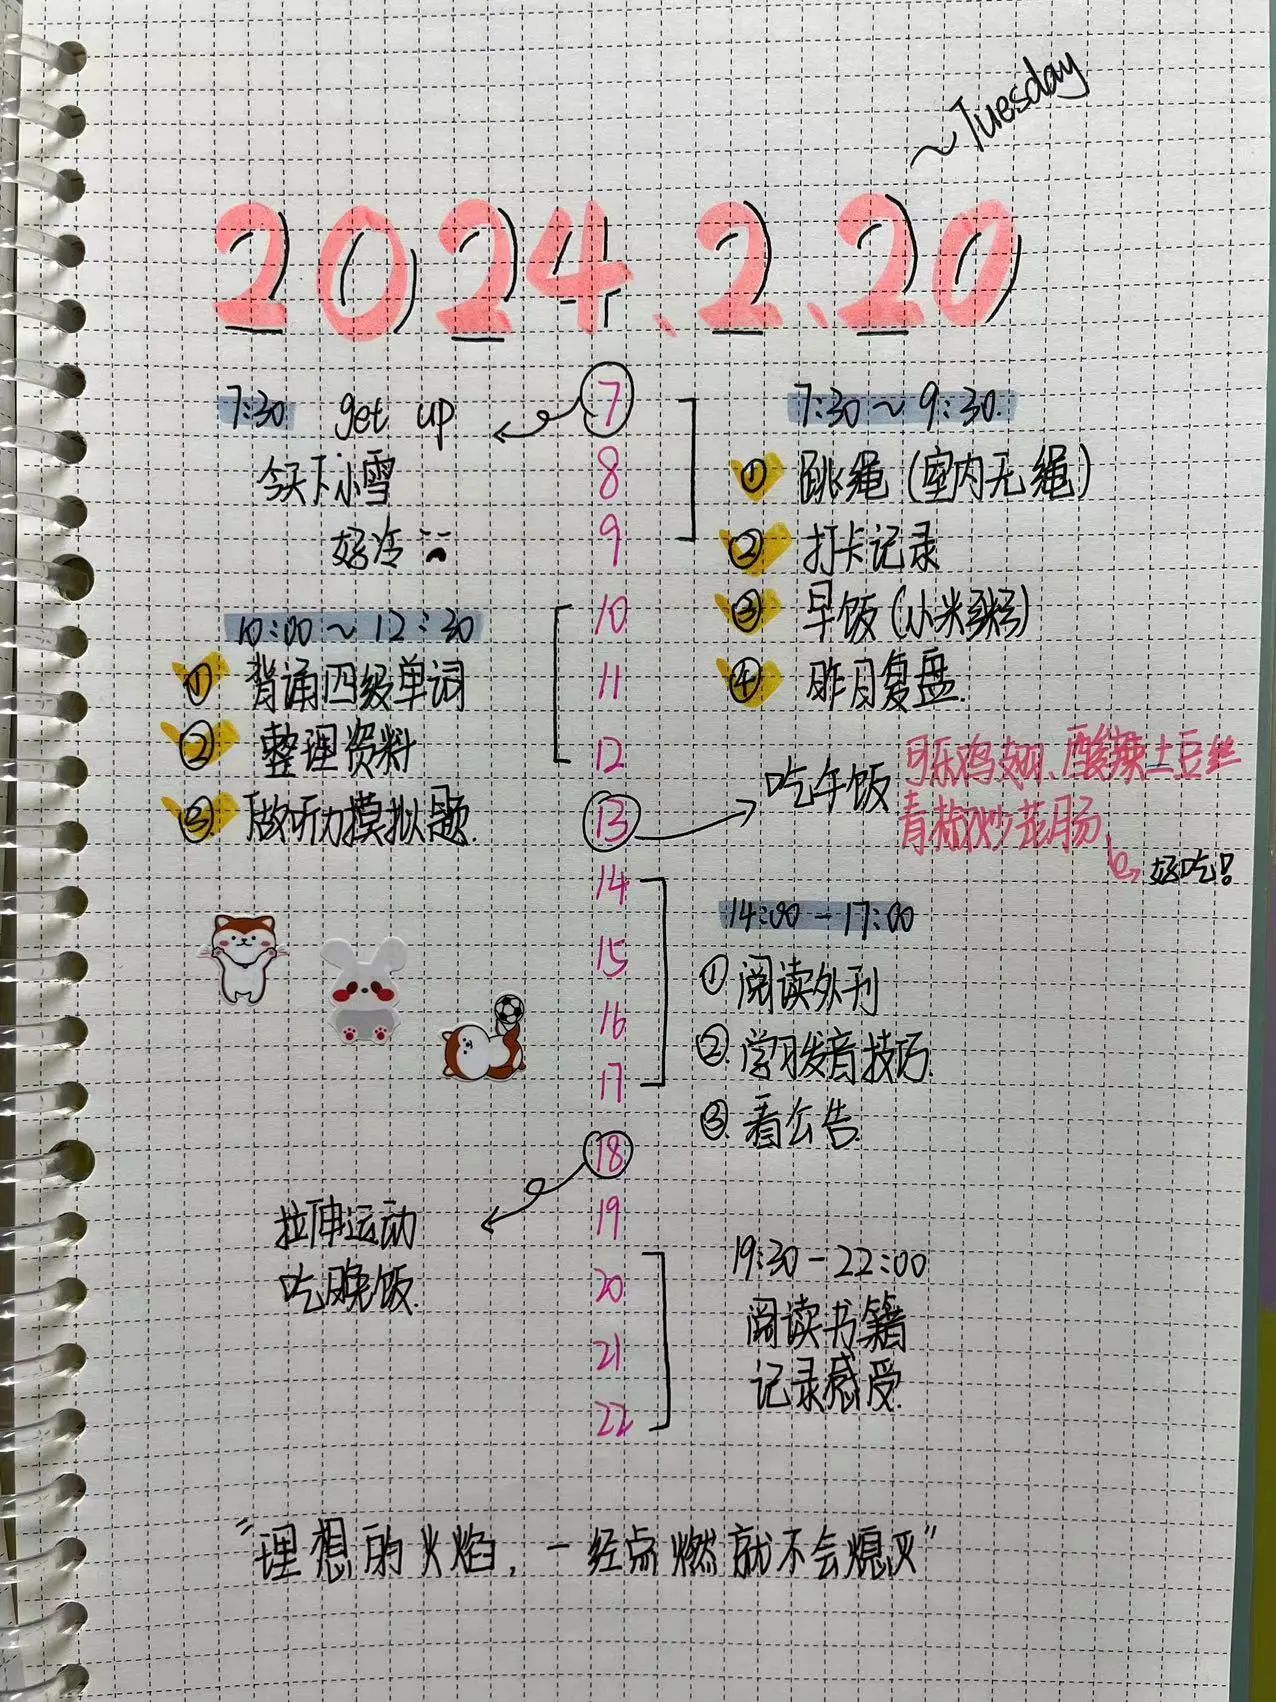 ~Tuesday
2024.2.20
7:30 get up
今天下小雪
好冷
7
8
9
10
11
12
13
14
15
16
17
18
19
20
21
22
7:30~9:30
① 跳绳(室内无绳)
② 打卡记录
③ 早饭(小米粥)
④ 昨日复盘
10:00~12:30
① 背诵四级单词
② 整理资料
③ 做听力模拟题
吃午饭 可乐鸡翅、酸辣土豆丝
青椒炒花肠
好吃!
14:00-17:00
① 阅读外刊
② 学习发音技巧
③ 看公告
拉伸运动
吃晚饭
19:30-22:00
阅读书籍
记录感受
"理想的火焰,一经点燃就不会熄灭"